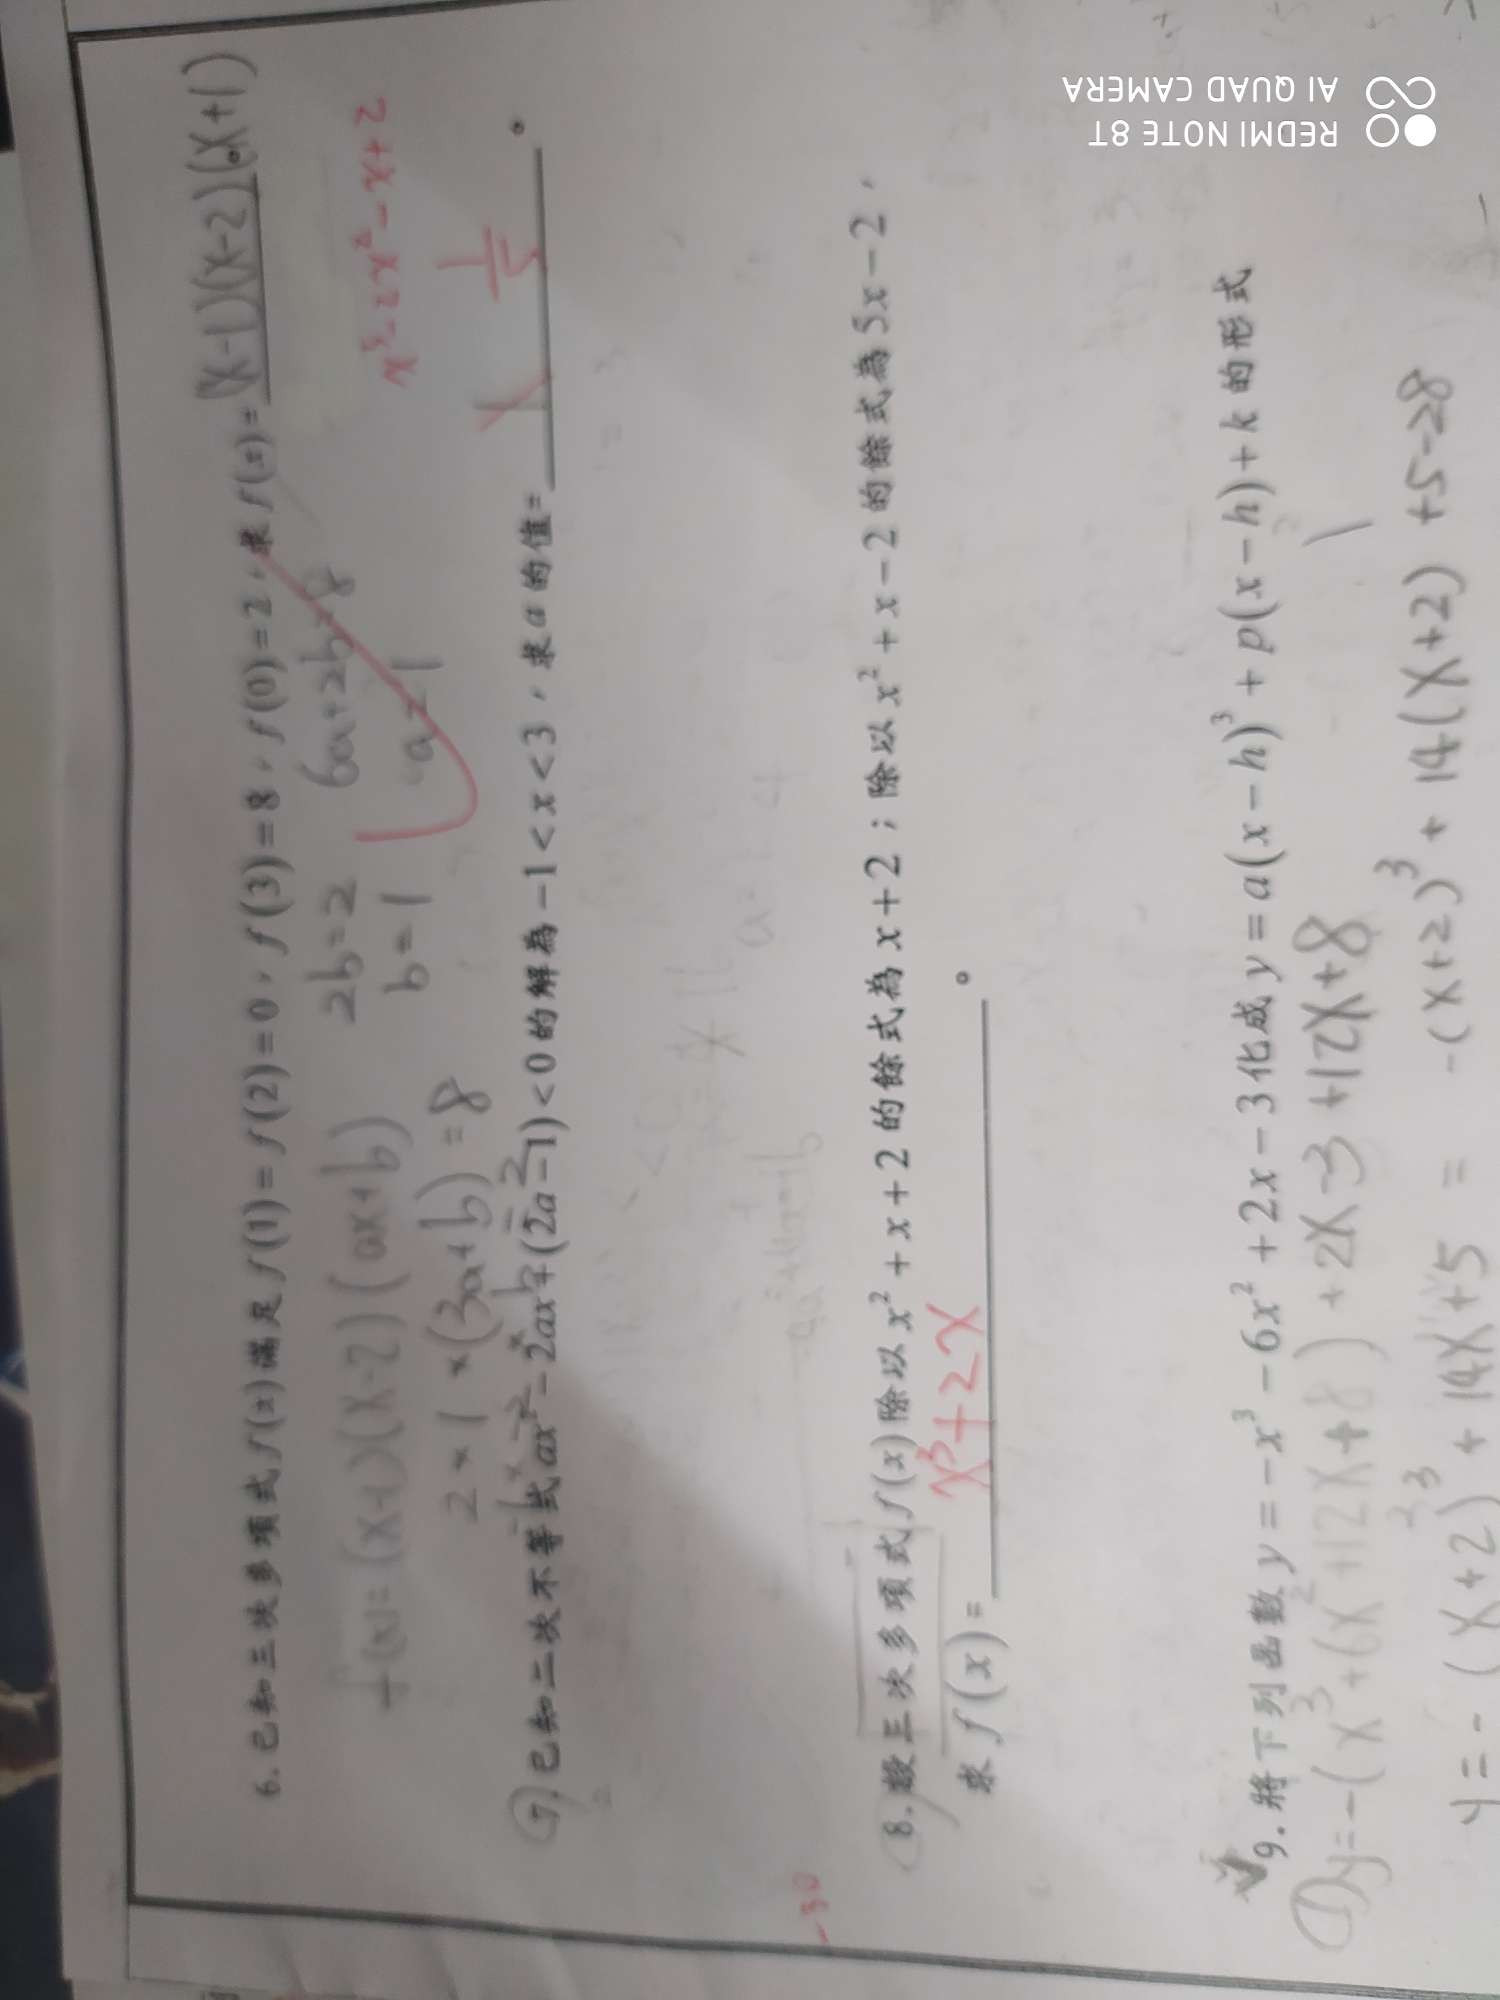 6.已知三次多項式f(x)滿足f(1)=f(2)=0，f(3)=8，f(0)=2，求f(x)=(x-1)(x-2)(x+1)。
f(x)=(x-1)(x-2)(ax+b)
2b=2
6a+2b=8
x³-2x²-x+2
b=1
a=1
2×1×(3a+b)=8
7.已知二次不等式ax²-2ax+(2a-1)<0的解為-1<x<3，求a的值=
1/5
。
-30
8.設三次多項式f(x)除以x²+x+2的餘式為x+2；除以x²+x-2的餘式為5x-2，
求f(x)=x³+2x。
9.將下列函數y=-x³-6x²+2x-3化成y=a(x-h)³+p(x-h)+k的形式
①y=-(x³+6x²+12x+8)+2x-3+12x+8
y=-(x+2)³+14x+5=-(x+2)³+14(x+2)+5-28
REDMI NOTE 8T
AI QUAD CAMERA